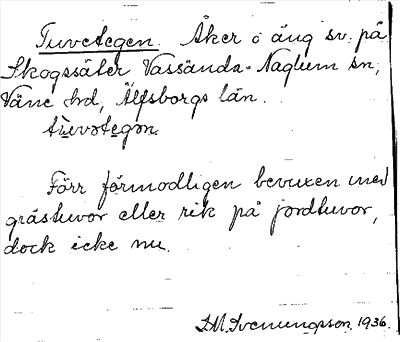 Tuvetegen. Åker o äng sv. på
Skogssäter Vassända-Naglum sn,
Väne hd, Älfsborgs län.
tu̇vətegən.
Förr förmodligen bevuxen med
grästuvor eller rik på jordtuvor,
dock icke nu.
D.M. Svenungsson, 1936.